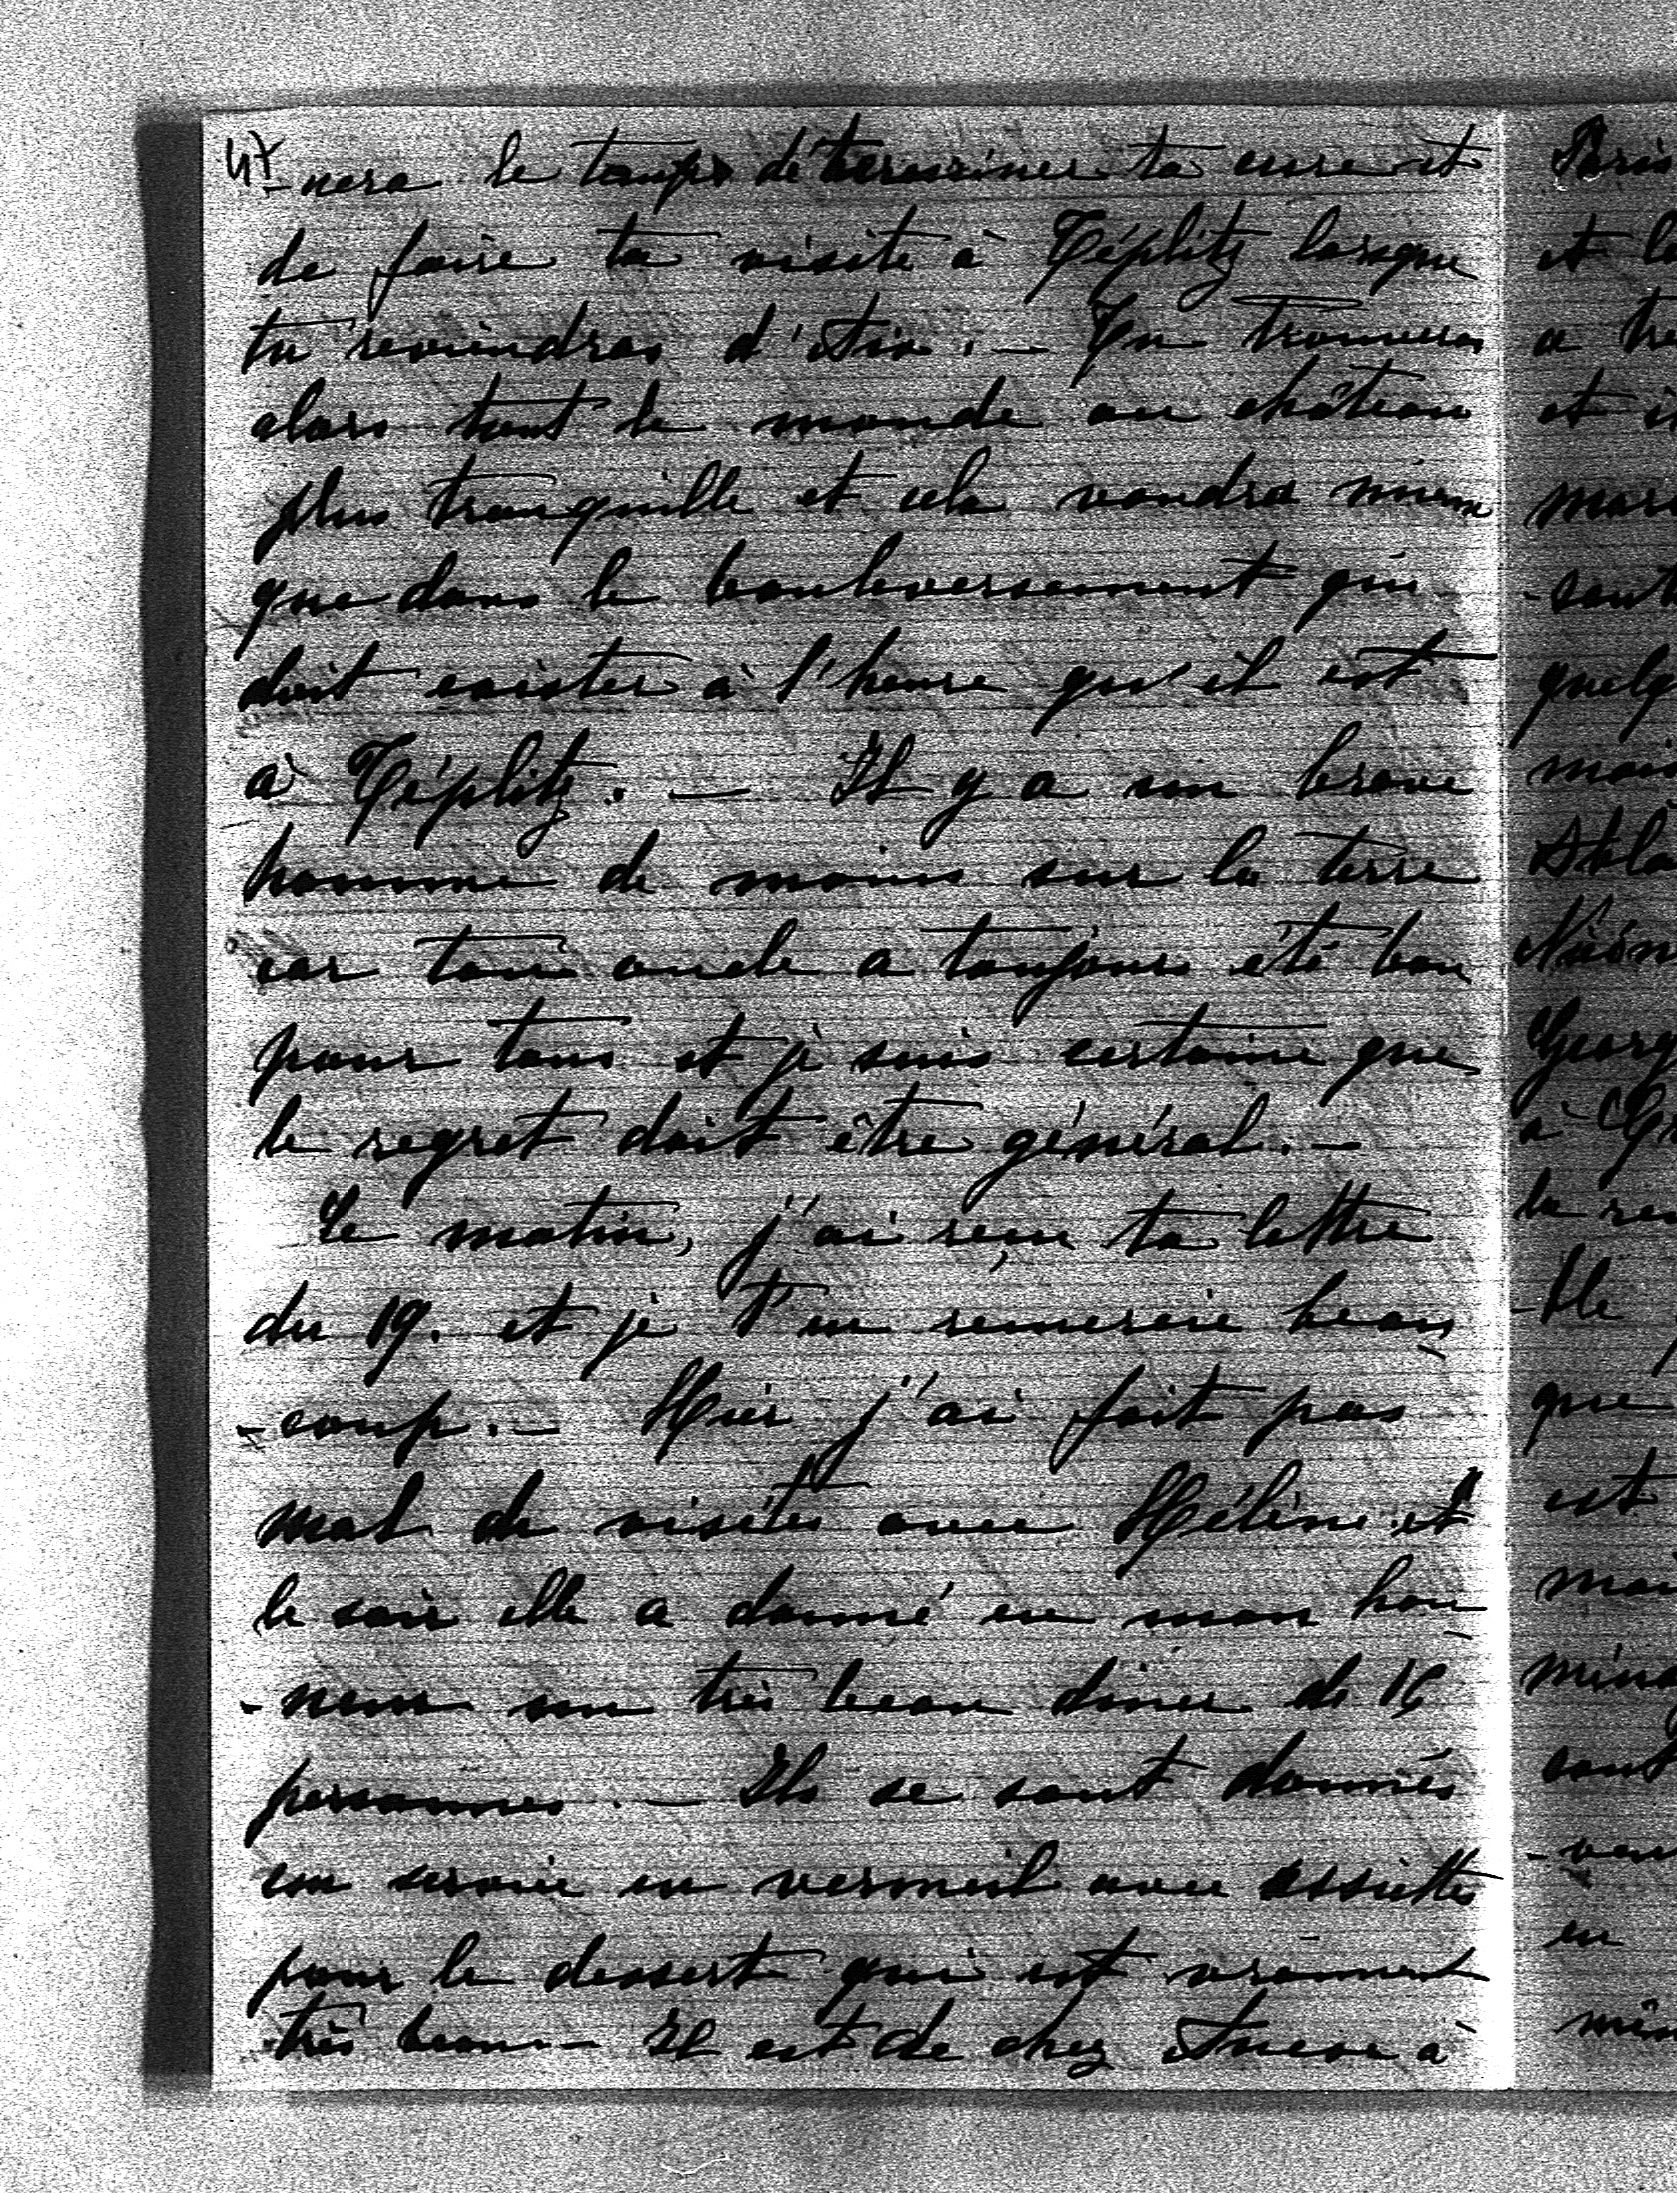 47
-nera le temps de terminer ta cure et
de faire ta visite à Téplitz lorsque
tu reviendras d'Aix. — Tu trouveras
alors tout le monde au château
plus tranquille et cela vaudra mieux
que dans le bouleversement qui
doit exister à l'heure qu'il est
à Téplitz. — Il y a un brave
homme de moins sur la terre
car ton oncle a toujours été bon
pour tous et je suis certaine que
le regret doit être général. —
Ce matin, j'ai reçu ta lettre
du 19. et je t'en remercie beau-
-coup. — Hier j'ai fait pas
mal de visites avec Hélène et
le soir elle a donné en mon hon-
-neur un très beau dîner de 16
personnes. — Ils se sont donnés
un service en vermeil avec assiettes
pour le dessert qui est vraiment
très beau — Il est de chez à
Paris
et
a
et
-sent
Georg
à
-ble
que
est
en